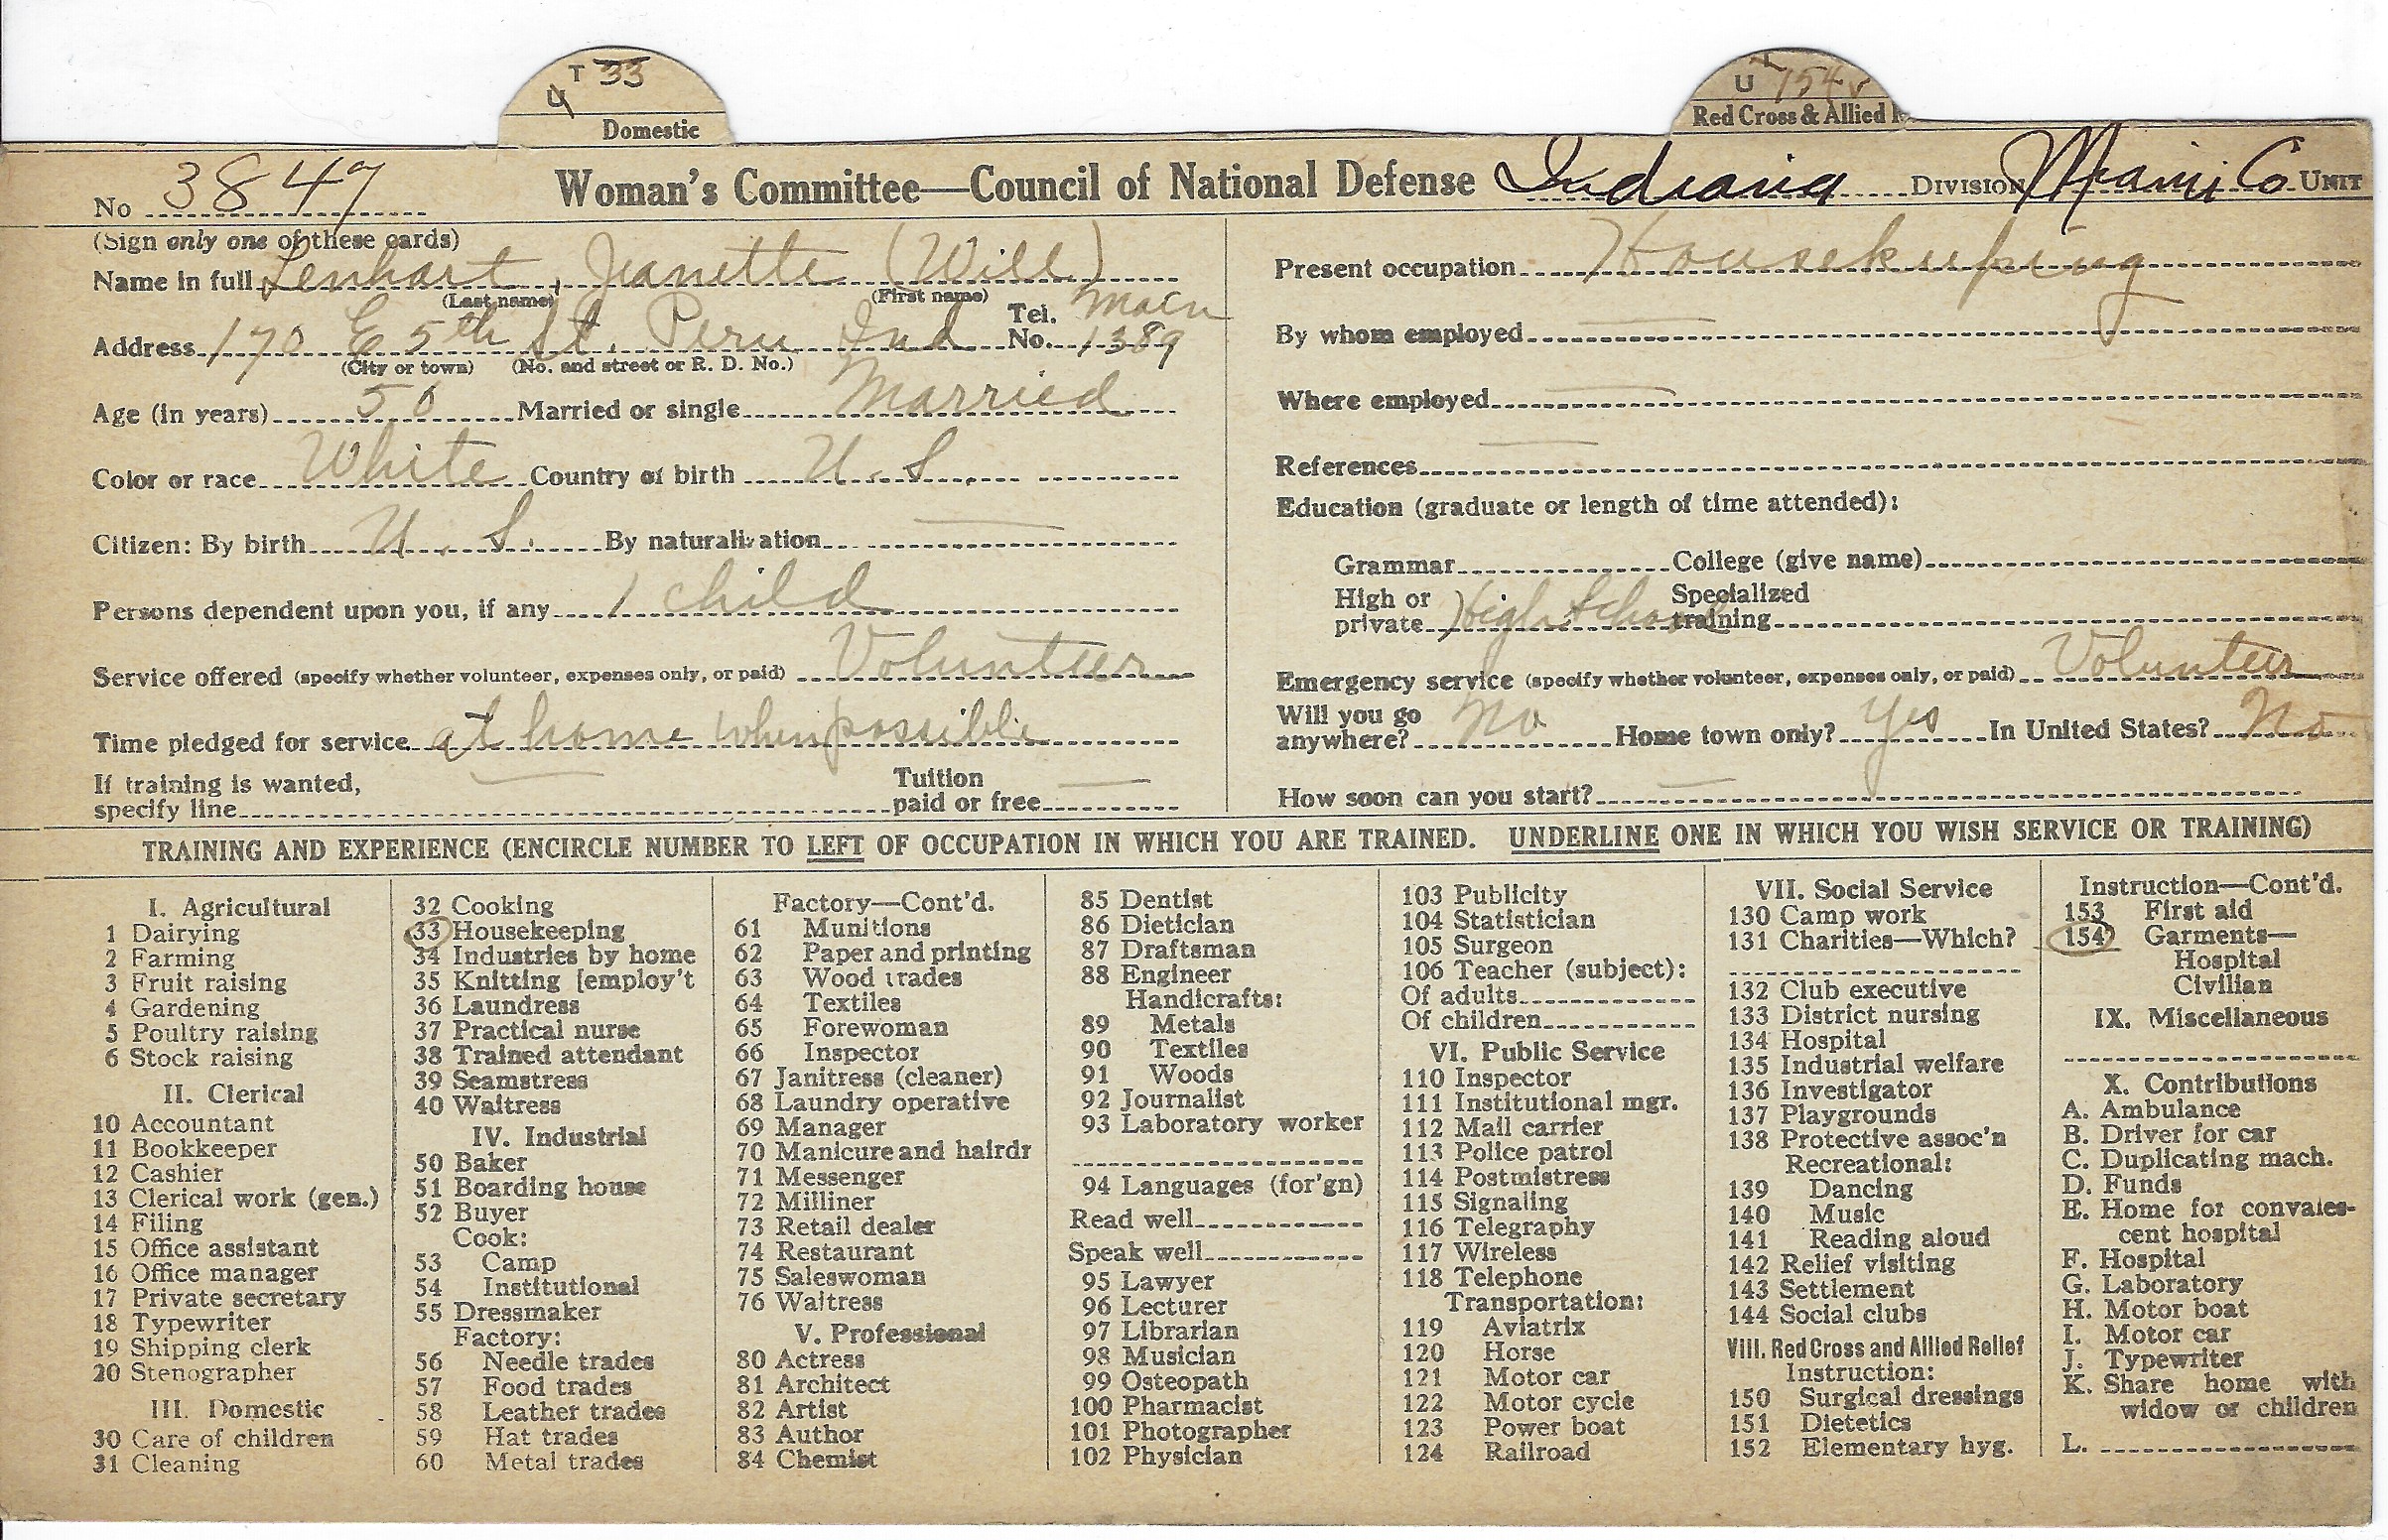 T 33
U
Domestic
U 154
Red Cross & Allied
No 3847
Woman's Committee—Council of National Defense Indiana DIVISION Miami Co UNIT
(Sign only one of these cards)
Name in full Lenhart, Jeanette (Will)
(Last name) (First name)
Address 170 E 5th St. Peru Ind Tel. No. Main 1389
(City or town) (No. and street or R. D. No.)
Age (in years) 50 Married or single Married
Color or race White Country of birth U.S.
Citizen: By birth U.S. By naturalization
Persons dependent upon you, if any 1 child
Service offered (specify whether volunteer, expenses only, or paid) Volunteer
Time pledged for service at home when possible
If training is wanted,
specify line
Tuition
paid or free
Present occupation Housekeeping
By whom employed
Where employed
References
Education (graduate or length of time attended):
Grammar College (give name)
High or
private High School
Specialized
training
Emergency service (specify whether volunteer, expenses only, or paid) Volunteer
Will you go
anywhere? No Home town only? Yes In United States? No
How soon can you start?
TRAINING AND EXPERIENCE (ENCIRCLE NUMBER TO LEFT OF OCCUPATION IN WHICH YOU ARE TRAINED. UNDERLINE ONE IN WHICH YOU WISH SERVICE OR TRAINING)
I. Agricultural
1 Dairying
2 Farming
3 Fruit raising
4 Gardening
5 Poultry raising
6 Stock raising
II. Clerical
10 Accountant
11 Bookkeeper
12 Cashier
13 Clerical work (gen.)
14 Filing
15 Office assistant
16 Office manager
17 Private secretary
18 Typewriter
19 Shipping clerk
20 Stenographer
III. Domestic
30 Care of children
31 Cleaning
32 Cooking
33 Housekeeping
34 Industries by home
35 Knitting [employ't
36 Laundress
37 Practical nurse
38 Trained attendant
39 Seamstress
40 Waitress
IV. Industrial
50 Baker
51 Boarding house
52 Buyer
Cook:
53 Camp
54 Institutional
55 Dressmaker
Factory:
56 Needle trades
57 Food trades
58 Leather trades
59 Hat trades
60 Metal trades
Factory—Cont'd.
61 Munitions
62 Paper and printing
63 Wood trades
64 Textiles
65 Forewoman
66 Inspector
67 Janitress (cleaner)
68 Laundry operative
69 Manager
70 Manicure and hairdr
71 Messenger
72 Milliner
73 Retail dealer
74 Restaurant
75 Saleswoman
76 Waitress
V. Professional
80 Actress
81 Architect
82 Artist
83 Author
84 Chemist
85 Dentist
86 Dietician
87 Draftsman
88 Engineer
Handicrafts:
89 Metals
90 Textiles
91 Woods
92 Journalist
93 Laboratory worker
94 Languages (for'gn)
Read well
Speak well
95 Lawyer
96 Lecturer
97 Librarian
98 Musician
99 Osteopath
100 Pharmacist
101 Photographer
102 Physician
103 Publicity
104 Statistician
105 Surgeon
106 Teacher (subject):
Of adults
Of children
VI. Public Service
110 Inspector
111 Institutional mgr.
112 Mail carrier
113 Police patrol
114 Postmistress
115 Signaling
116 Telegraphy
117 Wireless
118 Telephone
Transportation:
119 Aviatrix
120 Horse
121 Motor car
122 Motor cycle
123 Power boat
124 Railroad
VII. Social Service
130 Camp work
131 Charities—Which?
132 Club executive
133 District nursing
134 Hospital
135 Industrial welfare
136 Investigator
137 Playgrounds
138 Protective assoc'n
Recreational:
139 Dancing
140 Music
141 Reading aloud
142 Relief visiting
143 Settlement
144 Social clubs
VIII. Red Cross and Allied Relief
Instruction:
150 Surgical dressings
151 Dietetics
152 Elementary hyg.
Instruction—Cont'd.
153 First aid
154 Garments—
Hospital
Civilian
IX. Miscellaneous
X. Contributions
A. Ambulance
B. Driver for car
C. Duplicating mach.
D. Funds
E. Home for convales-
cent hospital
F. Hospital
G. Laboratory
H. Motor boat
I. Motor car
J. Typewriter
K. Share home with
widow or children
L.